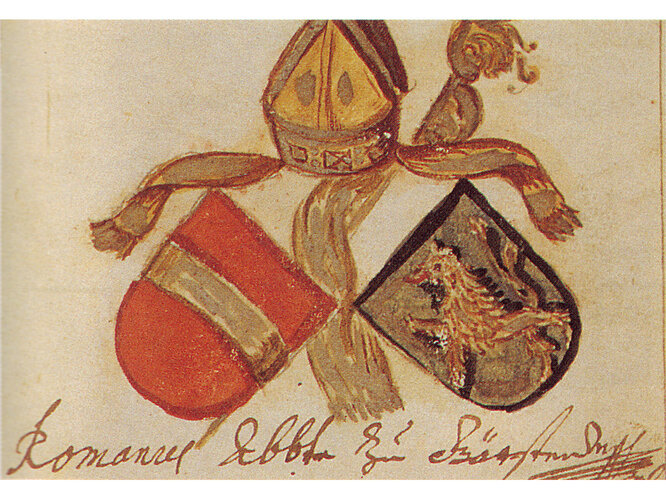 Romanus Abbte Zu